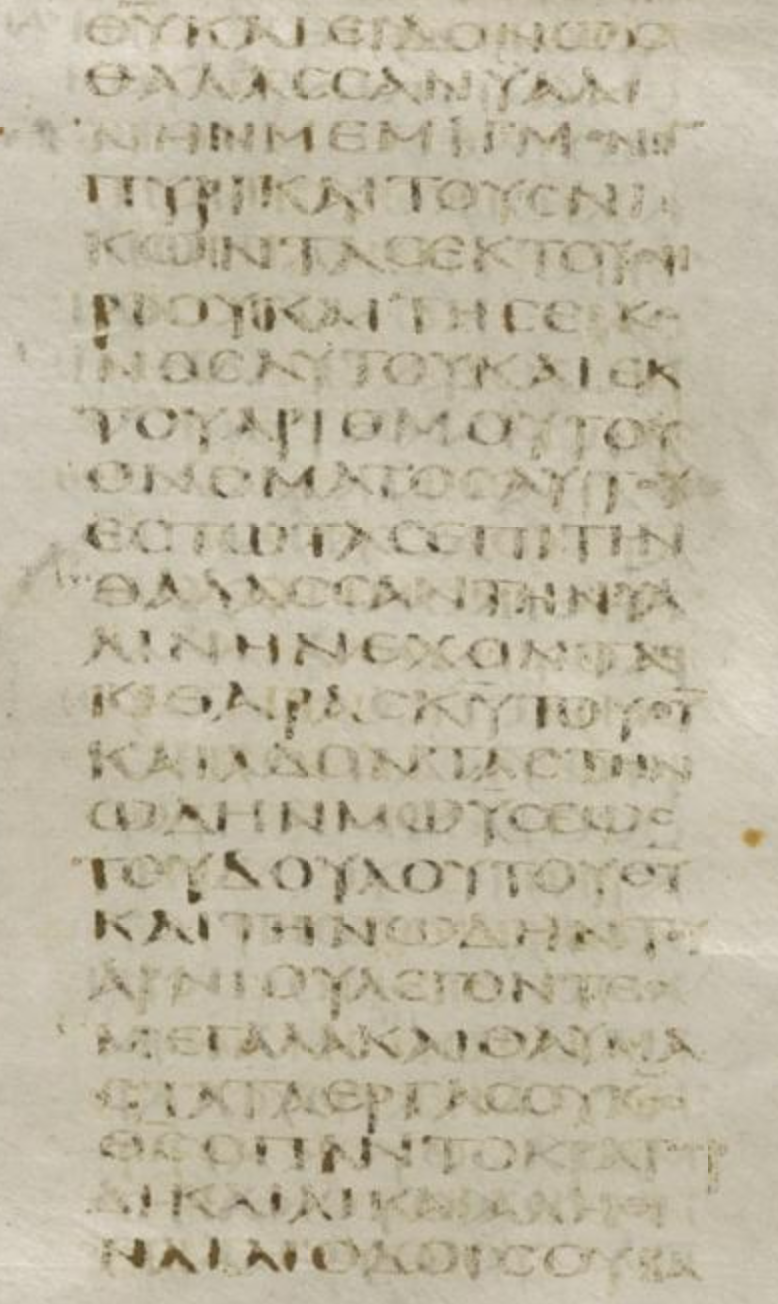 ΘΥΚΑΙΕΙΔΟΝΩϹ
ΘΑΛΑϹϹΑΝΥΑΛΙ
ΝΗΝΜΕΜΙΓΜΕΝΗ
ΠΥΡΙΚΑΙΤΟΥϹΝΙ
ΚΩΝΤΑϹΕΚΤΟΥΘΗ
ΡΙΟΥΚΑΙΤΗϹΕΙΚΟ
ΝΟϹΑΥΤΟΥΚΑΙΕΚ
ΤΟΥΑΡΙΘΜΟΥΤΟΥ
ΟΝΟΜΑΤΟϹΑΥΤΟΥ
ΕϹΤΩΤΑϹΕΠΙΤΗΝ
ΘΑΛΑϹϹΑΝΤΗΝΥΑ
ΛΙΝΗΝΕΧΟΝΤΑϹ
ΚΙΘΑΡΑϹΚ̅Υ̅ΤΟΥΘ̅Υ̅
ΚΑΙΑΔΟΝΤΑϹΤΗΝ
ΩΔΗΝΜΩΥϹΕΩϹ
ΤΟΥΔΟΥΛΟΥΤΟΥΘΥ
ΚΑΙΤΗΝΩΔΗΝΤΟΥ
ΑΡΝΙΟΥΛΕΓΟΝΤΕϹ
ΜΕΓΑΛΑΚΑΙΘΑΥΜΑ
ϹΤΑΤΑΕΡΓΑϹΟΥΚ̅Ε̅
ΘΕΟΠΑΝΤΟΚΡΑΤΩΡ
ΔΙΚΑΙΑΙΚΑΙΑΛΗΘΙ
ΝΑΙΑΙΟΔΟΙϹΟΥΒΑ